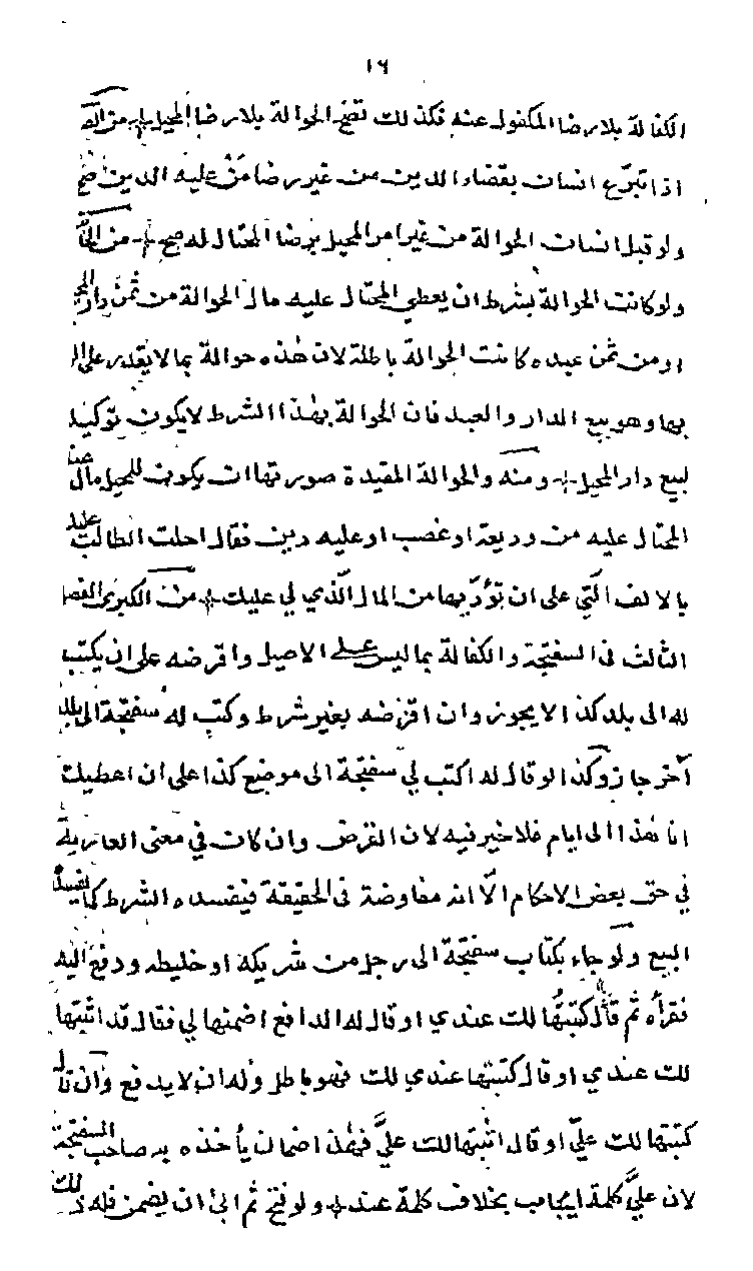 ١٦
الكفالة بلا رضا المكفول عنه فكذلك تصح الحوالة بلا رضا المحيل
اذا تبرع انسان بقضاء الدين من غير رضا مَنْ عليه الدين صح
ولو قبل انسان الحوالة من غير امر المحيل برضا المحتال له صح من
ولو كانت الحوالة بشرط ان يعطي المحتال عليه مال الحوالة من ثمن دار المحيل
او من ثمن عبده كانت الحوالة باطلة لان هذه حوالة بما لا يقدر على
بها وهو بيع الدار والعبد فان الحوالة بهذا الشرط لا يكون توكيلا
لبيع دار المحيل ومنه والحوالة المقيدة صورتها ان يكون للمحيل مال عند
المحتال عليه من وديعة او غصب او عليه دين فقال احلت الطالب عليك
بالالف الّتي على ان تؤدّيها من المال الّذي لي عليك من الكبرى الفصل
الثالث في السفتجة والكفالة بما ليس على الاصيل واقرضه على ان يكتب
له الى بلد كذا لا يجوز وان اقرضه بغير شرط وكتب له سفتجة الى بلد
آخر جاز وكذا لو قال له اكتب لي سفتجة الى موضع كذا على ان اعطيك
انا هذا الى ايام فلا خير فيه لان القرض وان كان في معنى العارية
في حق بعض الاحكام الّا انه مفاوضة في الحقيقة فيفسده الشرط كما يفسد
البيع ولو جاء بكتاب سفتجة الى رجل من شريكه او خليطه ودفع اليه
فقرأه ثم قال كتبتُها لك عندي او قال له الدافع اضمنها لي فقال قد اثبتها
لك عندي او قال كتبتها عندي لك فهو باطل وله ان لا يدفع وان قال
كتبتها لك عليّ او قال اثبتها لك عليَّ فهذا ضمان يأخذه به صاحب السفتجة
لان عليَّ كلمة ايجاب بخلاف كلمة عند ولو فتح ثم ابى ان يضمن فله ذلك